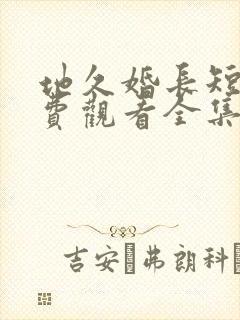 地久婚長短
費觀看全集
吉安·弗朗科·